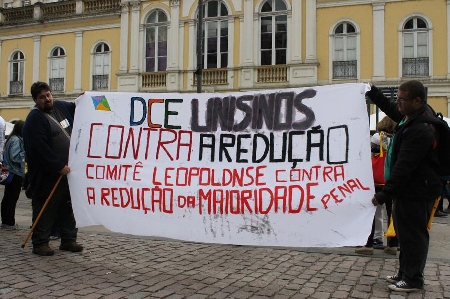 DCE UNISINOS
CONTRA A REDUÇÃO
COMITÊ LEOPOLDNSE CONTRA
A REDUÇÃO DA MAIORIDADE PENAL